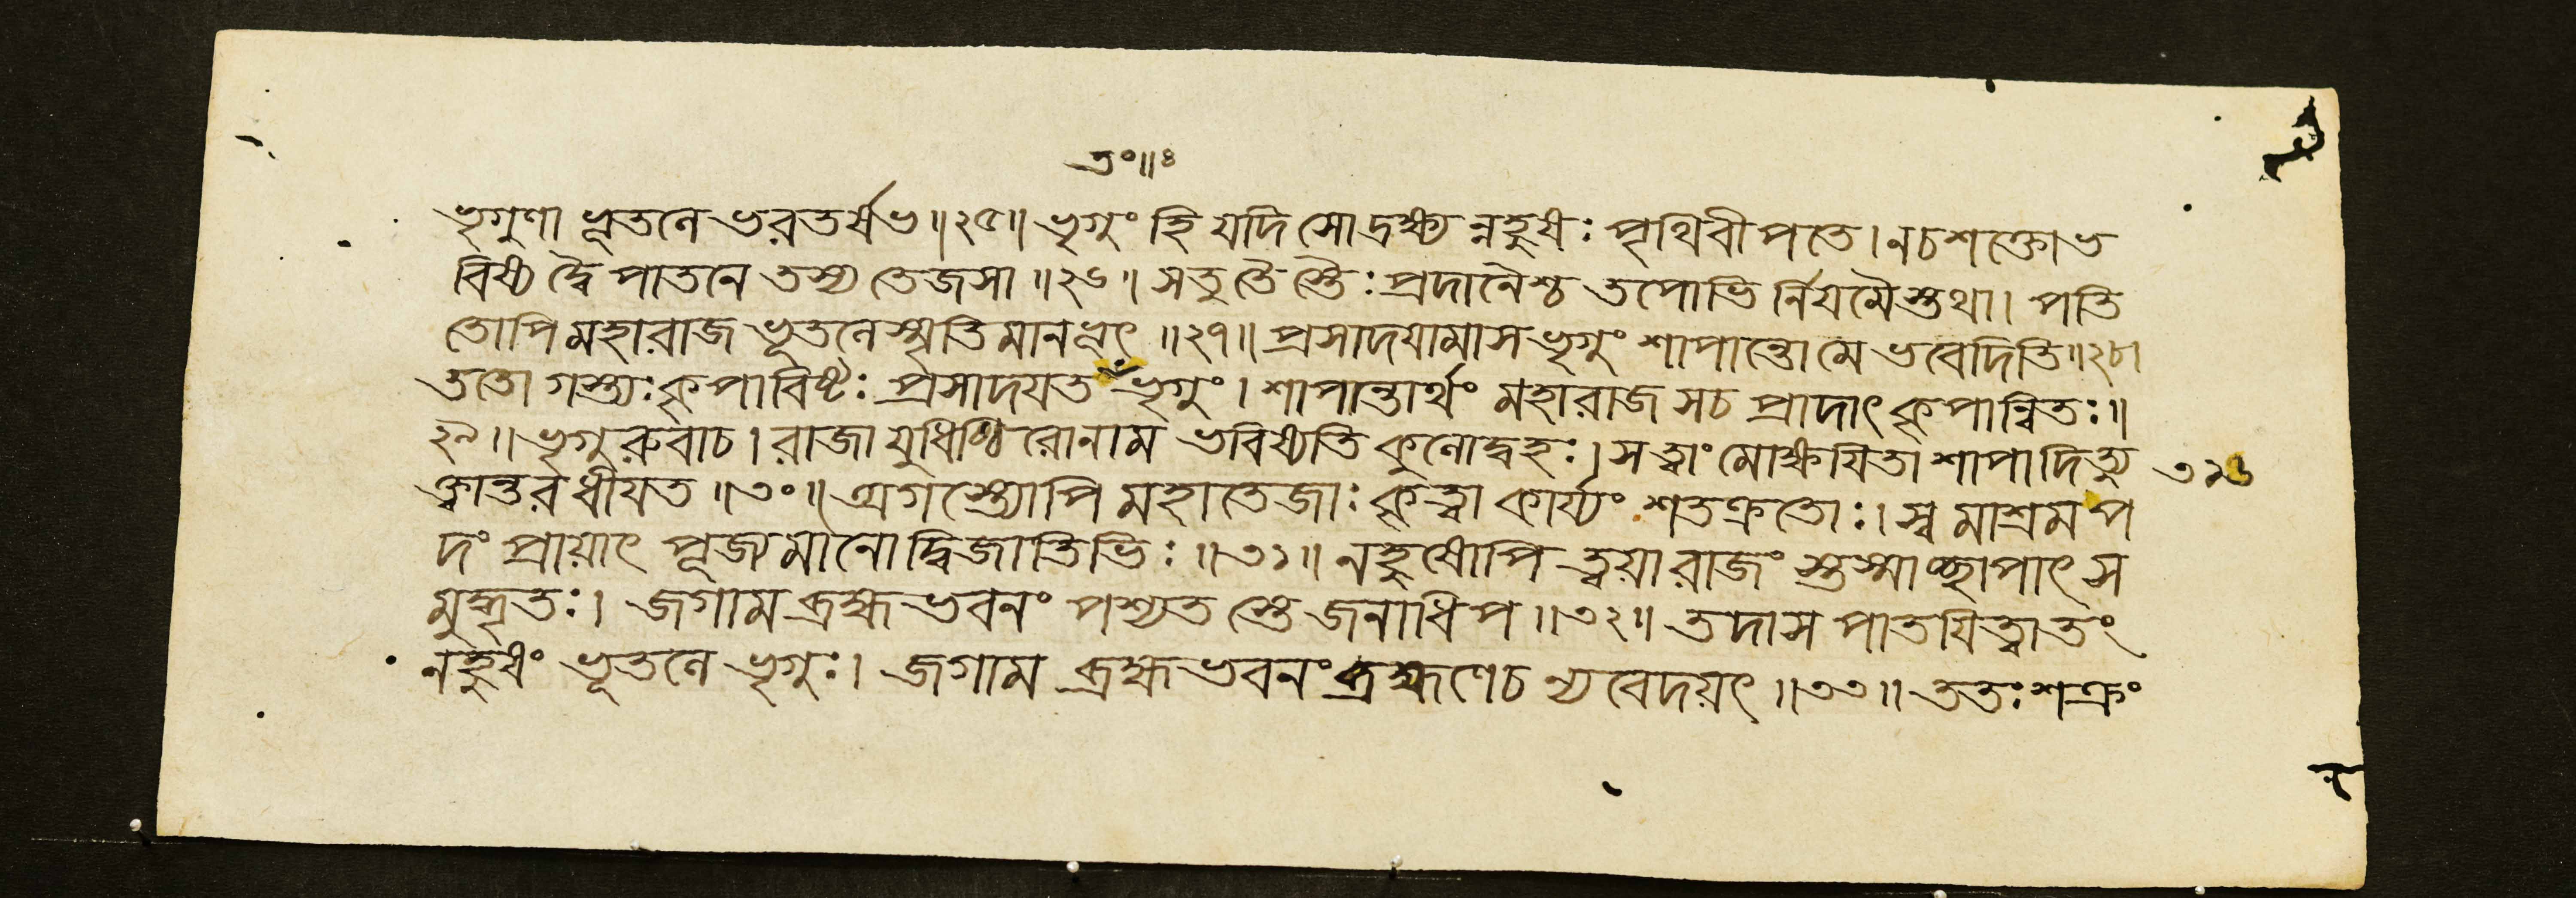 তং॥ঃ
ভৃগুণা ভূতলে ভরতর্ষভ॥২৫॥ ভৃগুং হি যদি সোদ্রক্ষ্য ন্নহুষঃ পৃথিবীপতে। ন চ শক্তোভ
বিষ্য দ্বৈ পাতনে তস্য তেজসা॥২৬॥ স তু তৈ স্তৈঃ প্রদানৈশ্চ তপোভি র্নিয়মৈস্তথা। পতি
তোপি মহারাজ ভূতলে স্মৃতিমানভূৎ॥২৭॥ প্রসাদয়ামাস ভৃগুং শাপান্তোমে ভবেদিতি॥২৮।
ততোগস্ত্যঃ কৃপাবিষ্টঃ প্রসাদয়ত তং ভৃগুং। শাপান্তার্থং মহারাজ স চ প্রাদাৎ কৃপান্বিতঃ॥
২৯॥ ভৃগুরুবাচ। রাজা যুধিষ্ঠিরোনাম ভবিষ্যতি কুলোদ্বহঃ। স ত্বাং মোক্ষয়িতা শাপাদিত্যু ৩১৬
ক্ত্বান্তরধীয়ত॥৩০॥ অগস্ত্যোপি মহাতেজাঃ কৃত্বা কার্য্যং শতক্রতোঃ। স্ব মাশ্রমপ
দং প্রায়াৎ পূজ্যমানোদ্বিজাতিভিঃ॥৩১॥ নহুষোপি ত্বয়া রাজং স্তস্মাচ্ছাপাৎ স
মুদ্ধৃতঃ। জগাম ব্রহ্মভবনং পশ্যত স্তে জনাধিপ॥৩২॥ তদা স পাতয়িত্বা তং
নহুষং ভূতলে ভৃগুঃ। জগাম ব্রহ্মভবনং ব্রহ্মণে চ ন্যবেদয়ৎ॥৩৩॥ ততঃ শক্রং